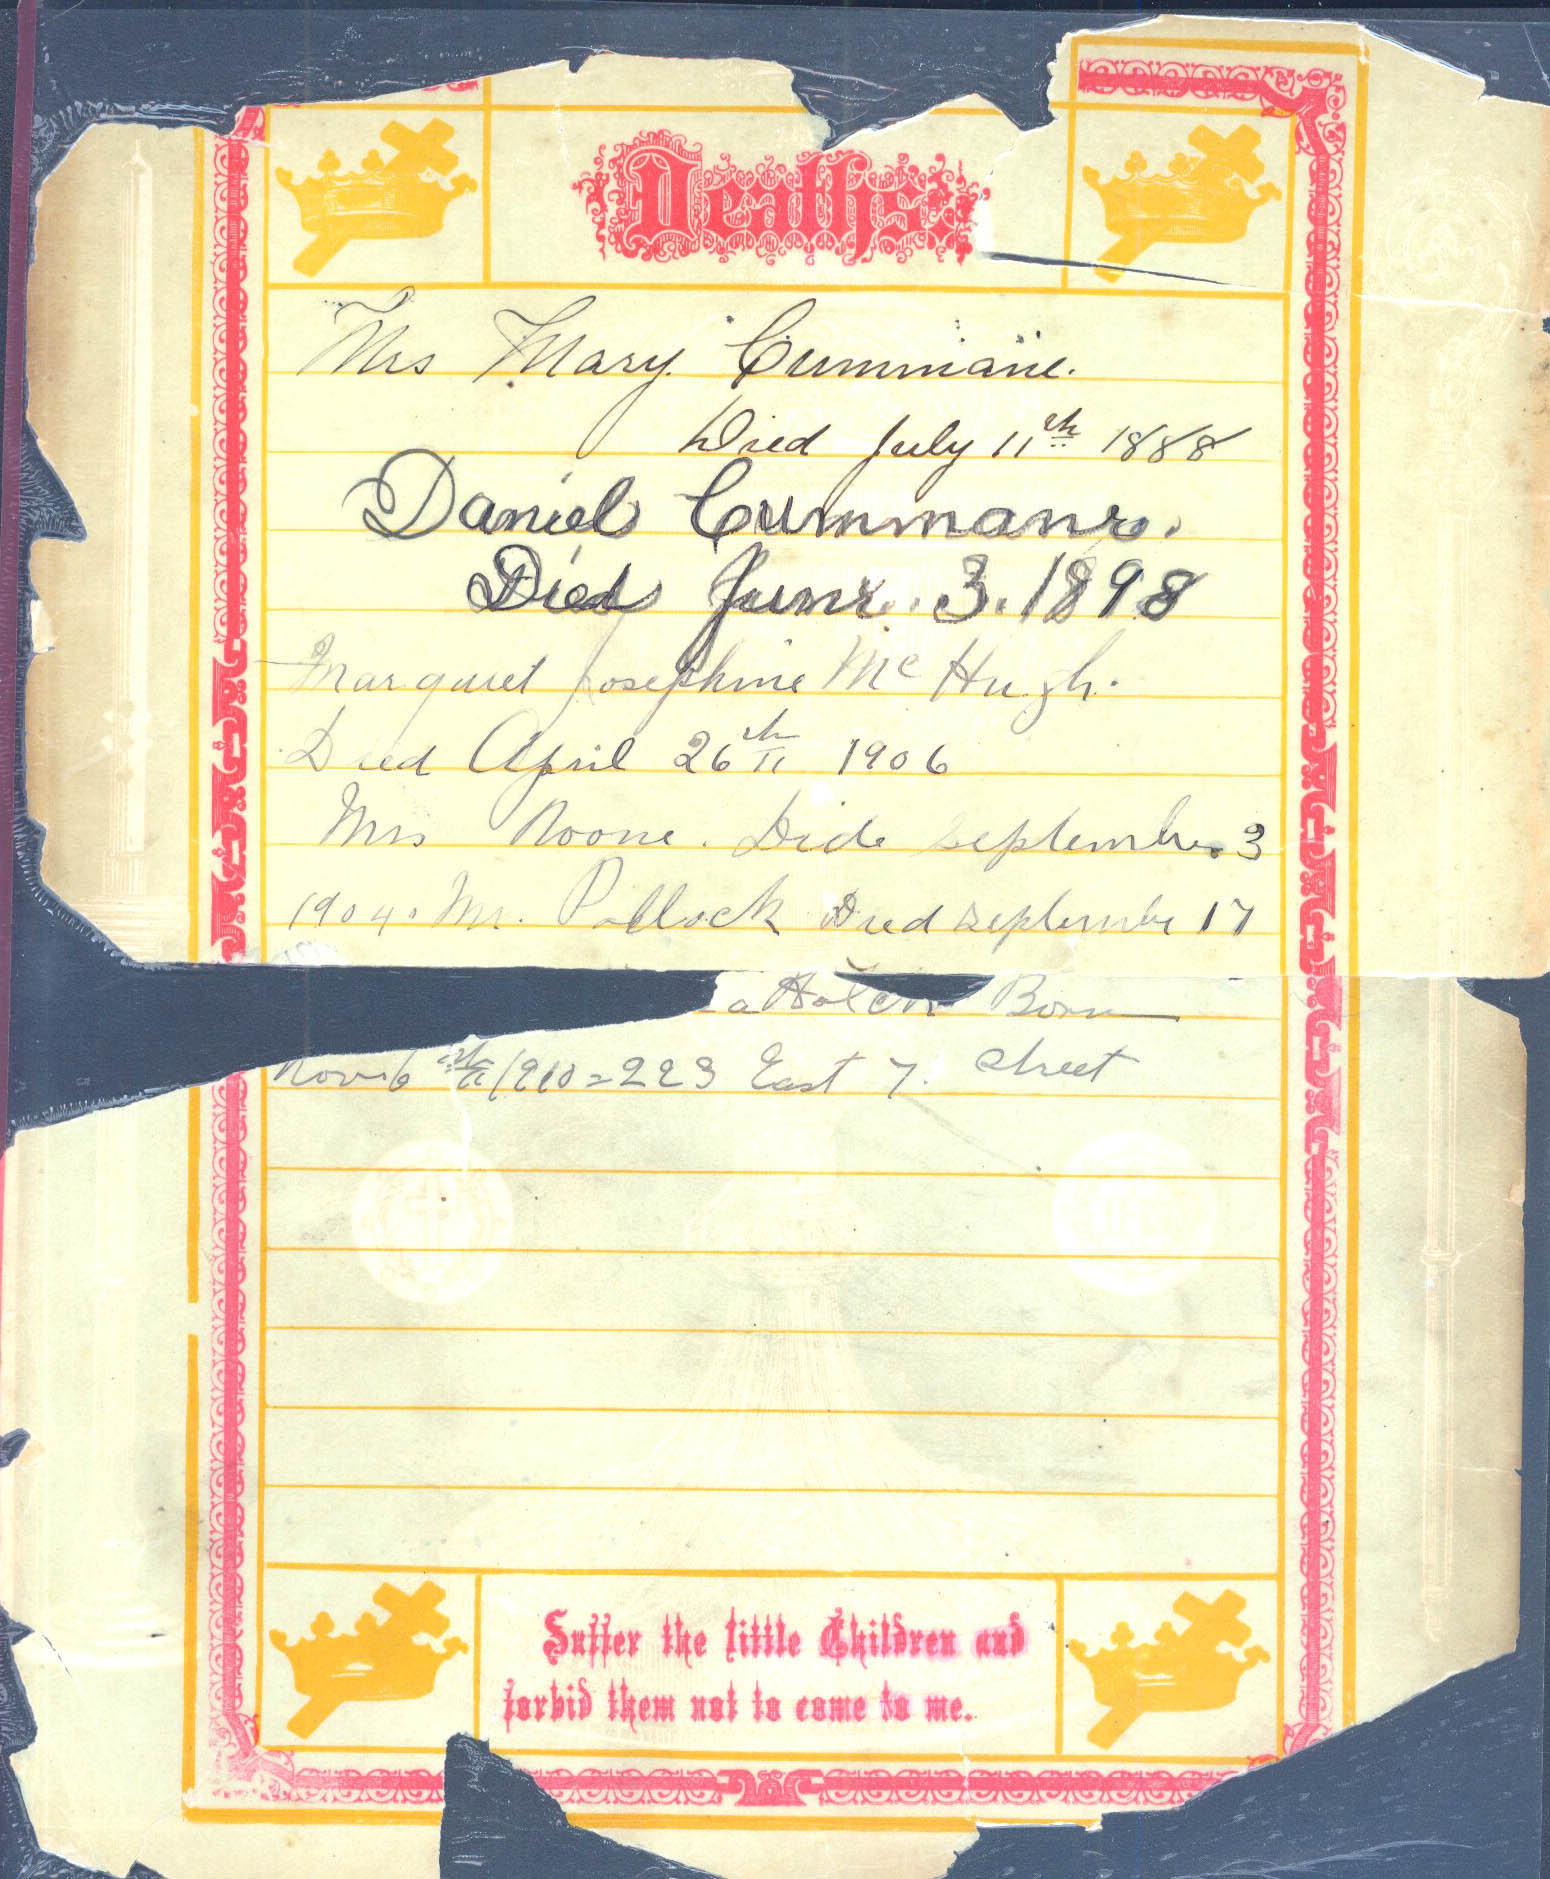 Deaths.
Mrs Mary Cummane.
Died July 11th 1888
Daniel Cummane.
Died June. 3. 1898
Margaret Josephine Mc Hugh.
Died April 26th 1906
Mrs Noone. Dide September 3
1904. Mr. Pollock Died September 17
Born
Nov 6th 1910 = 223 East 7. Street
Suffer the little Children and
forbid them not to come to me.